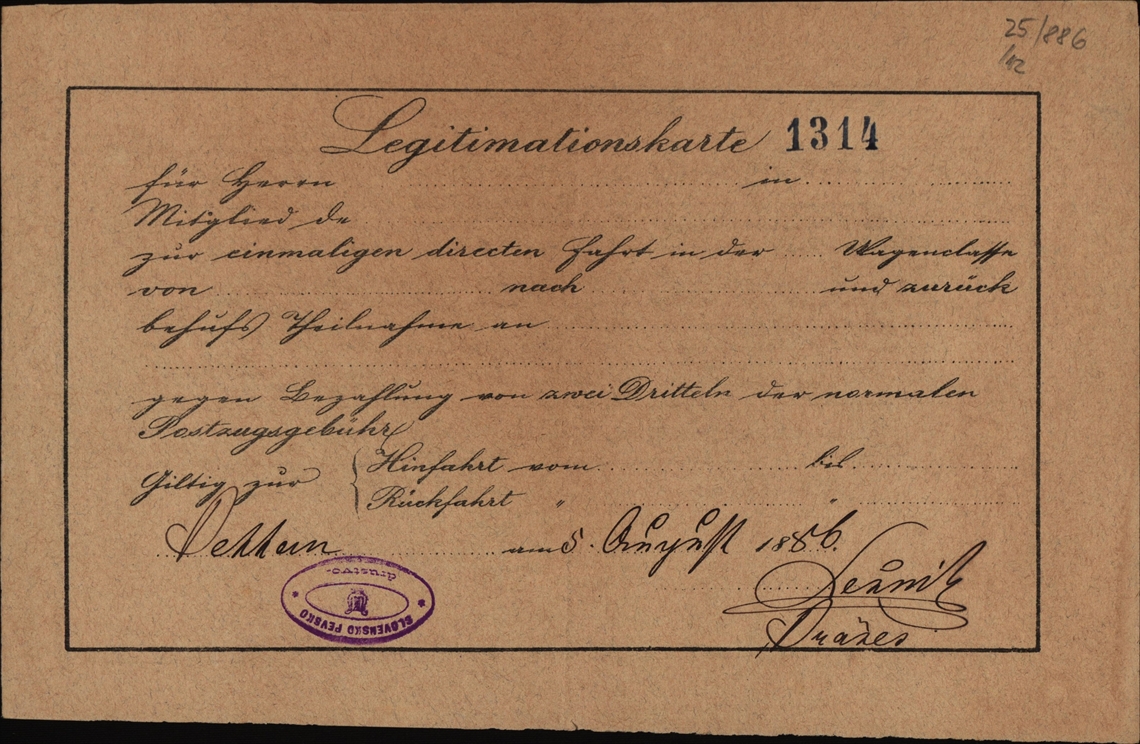 25/886
/12
Legitimationskarte 1314
für Herrn in
Mitglied de
zur einmaligen directen Fahrt in der Wagenclasse
von nach und zurück
behufs Theilnahme an
gegen Bezahlung von zwei Dritteln der normalen
Postzugsgebühr
Giltig zur { Hinfahrt vom bis
Rückfahrt " "
am 5. August 1886.
SLOVENSKO PEVSKO
društvo